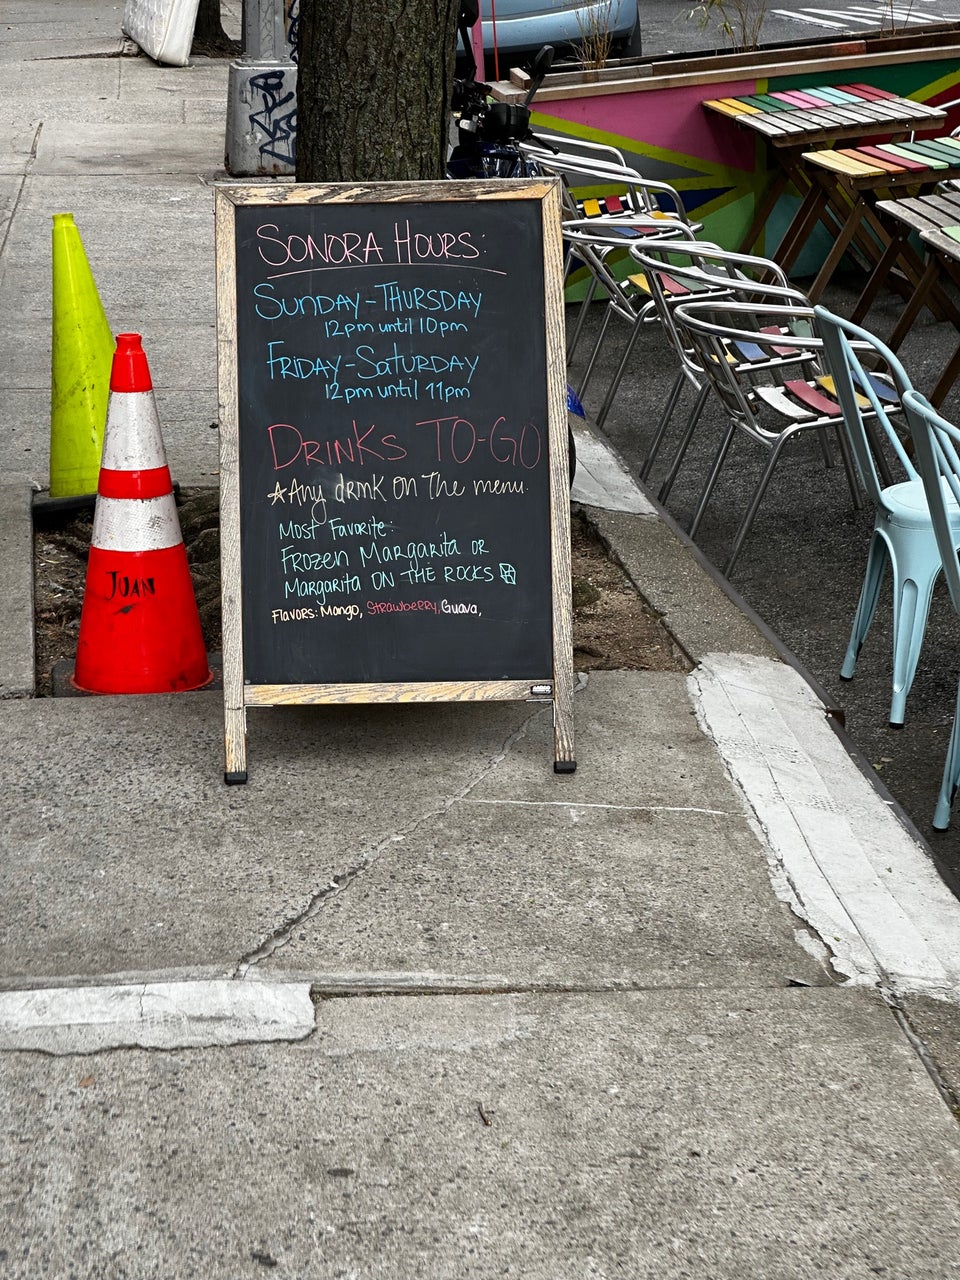 SONORA HOURS:
SUNDAY-THURSDAY
12pm until 10pm
FRIDAY-SATURDAY
12pm until 11pm
DRINKS TO-GO
Any drink on the menu.
Most Favorite:
Frozen Margarita or
Margarita ON THE ROCKS
Flavors: Mango, Strawberry, Guava,
JUAN